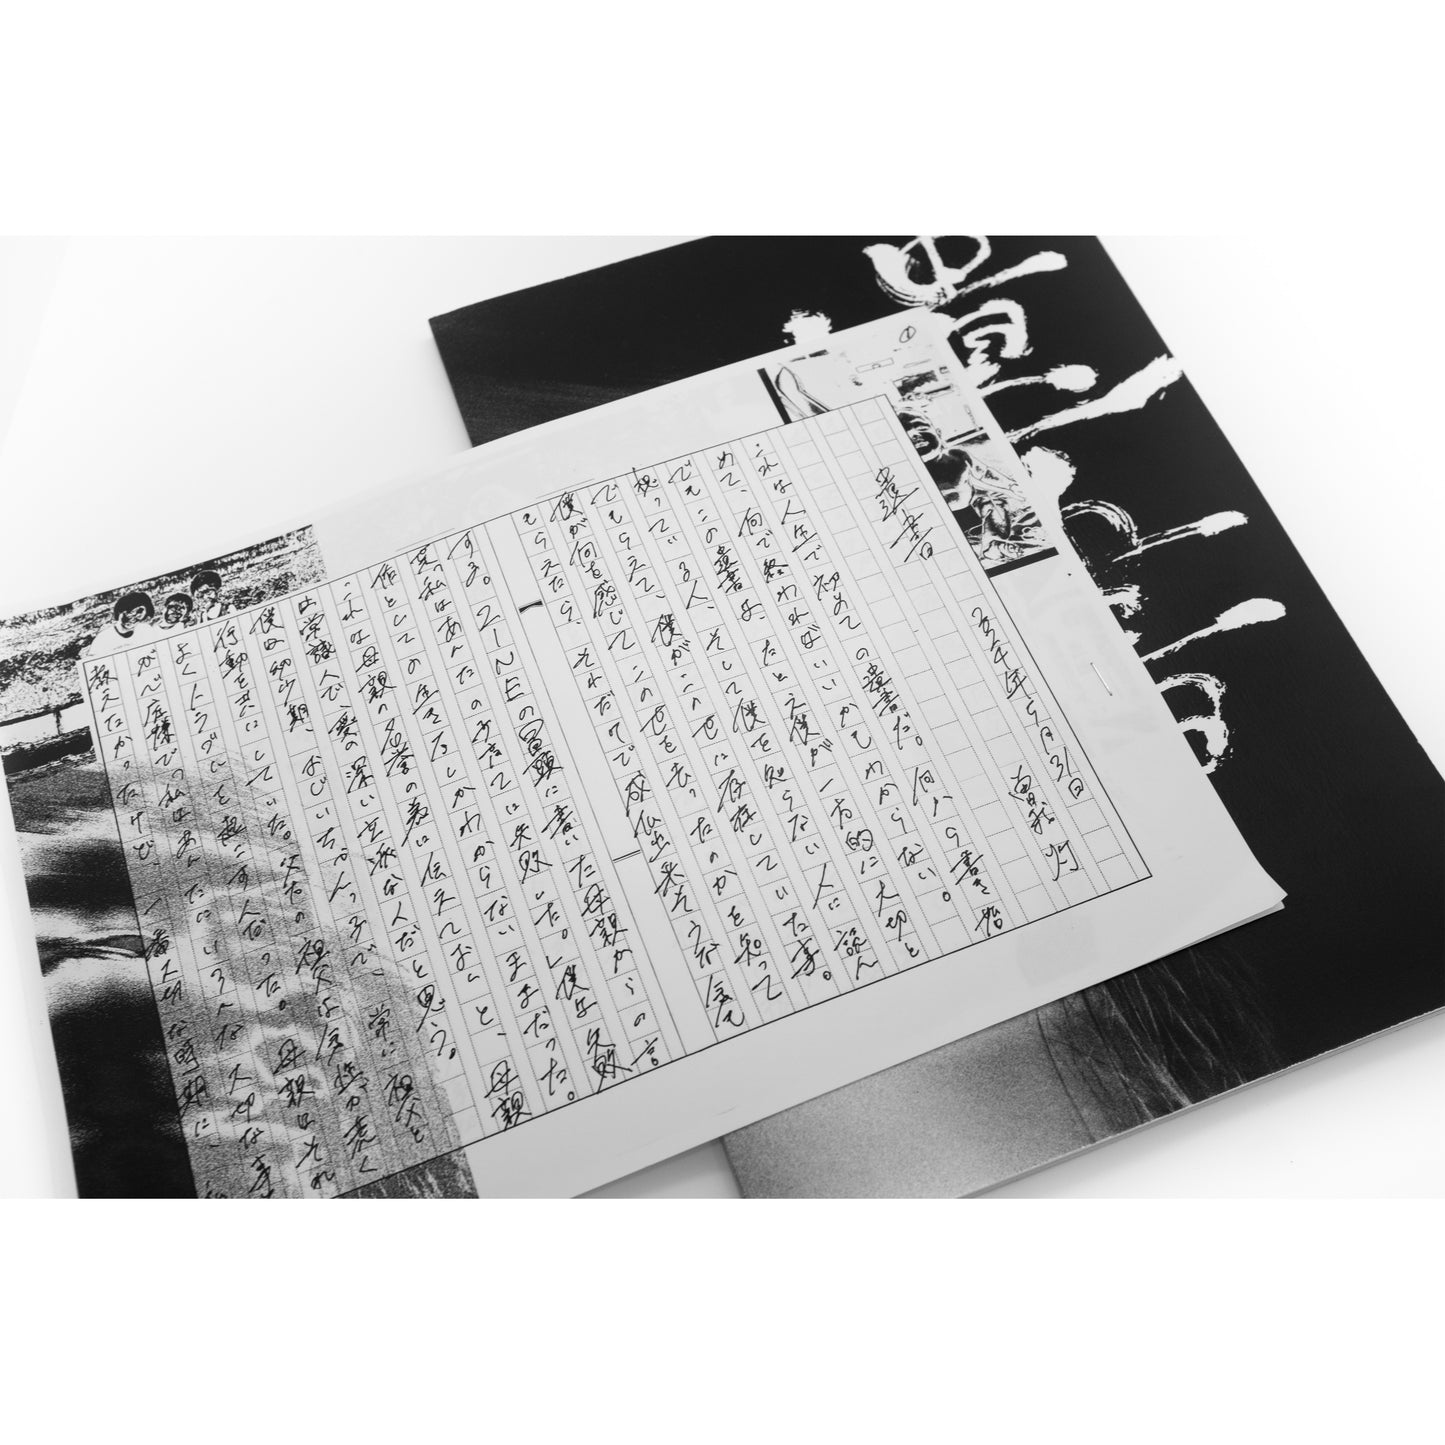 遺書
五十年5月31日
曽我 灯
これは人生で初めての遺書だ。何から書き始
めて、何で終わればいいかもわからない。
でもこの遺書は、たとえ僕が一方的に大切と
想っている人、そして僕を知らない人に読ん
でもらえて、僕がこの世に存在していた事。
僕が何を感じてこの世を去ったのかを知って
もらえたら、それだけで成仏出来そうな気も
する。ZINEの冒頭に書いた母親からの言
実っ私はあんたの子育てに失敗した。し僕は失敗
作としての生き方しかわからないままだった。
これは母親の名誉の為に伝えておくと、母親
は常識人で、愛の深い立派な人だと思う。
僕は幼少期、おじいちゃんっ子で、常に祖父と
行動を共にしていた。父方の祖父は気性が荒く
よくトラブルを起こす人だった。母親はそれ
が心底嫌で「私はあんたにいろんな大切な事
教えたかったけど、一番大切な時期に、